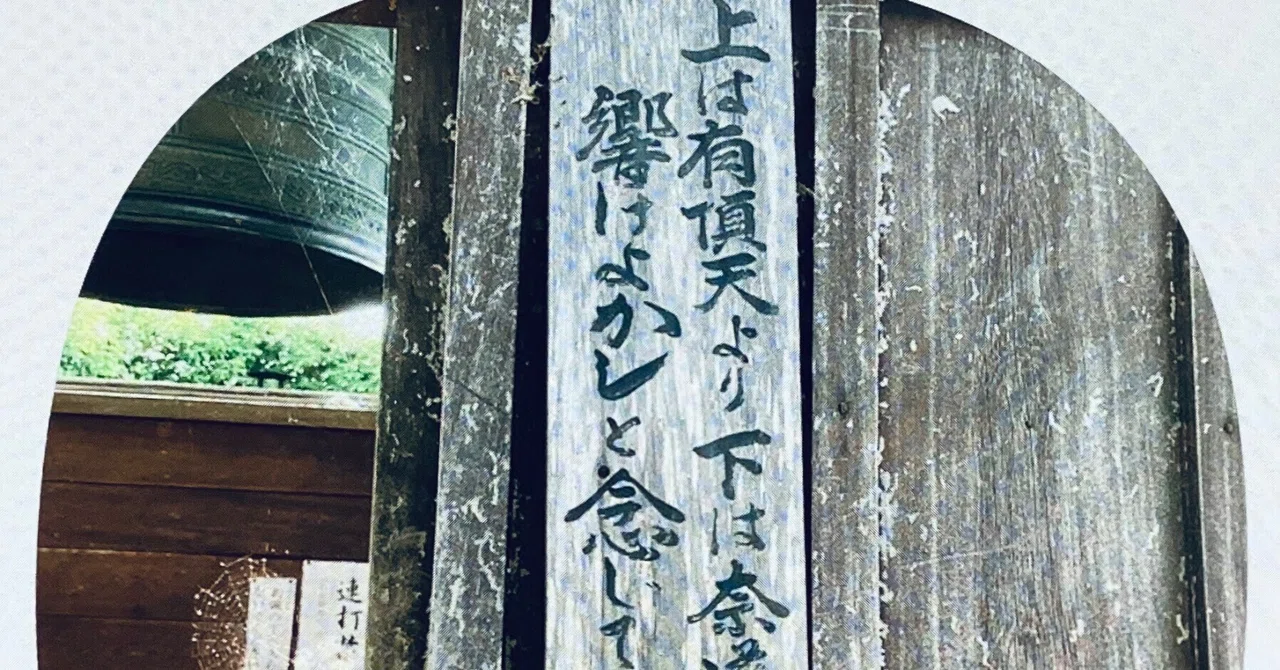 上は有頂天より下は奈
響けよかしと念じて
連打